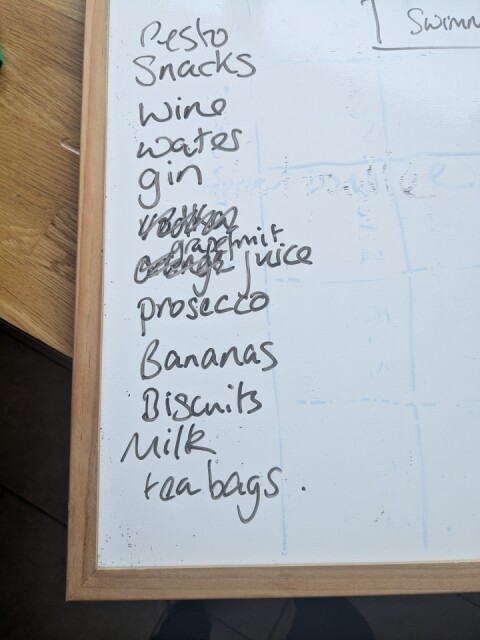 Pesto
Snacks
wine
water
gin
grapefruit
juice
prosecco
Bananas
Biscuits
Milk
tea bags.